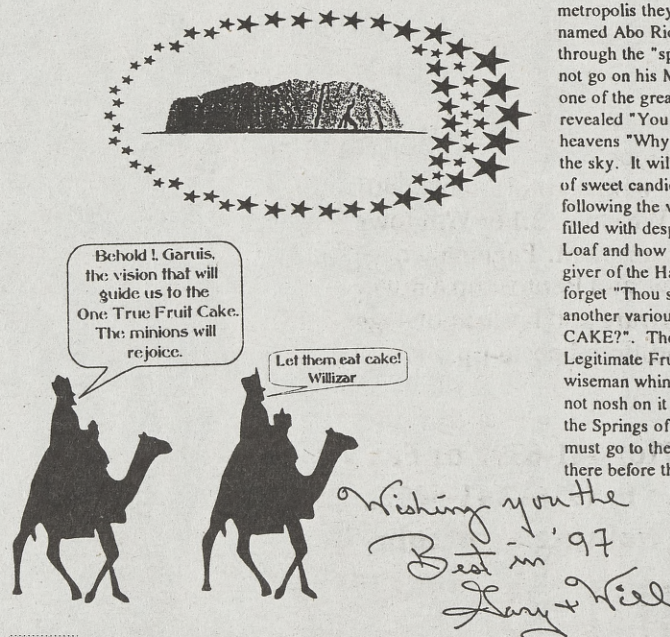 Behold !, Garuis,
the vision that will
guide us to the
One True Fruit Cake.
The minions will
rejoice.
Let them eat cake!
Willizar
metropolis they
named Abo Ric
through the "sp
not go on his M
one of the grea
revealed "You
heavens "Why
the sky. It wil
of sweet candie
following the v
filled with desp
Loaf and how
giver of the Ha
forget "Thou s
another variou
CAKE?". The
Legitimate Fru
wiseman whin
not nosh on it
the Springs of
must go to the
there before th
Wishing you the
Best in '97
Gary + Will